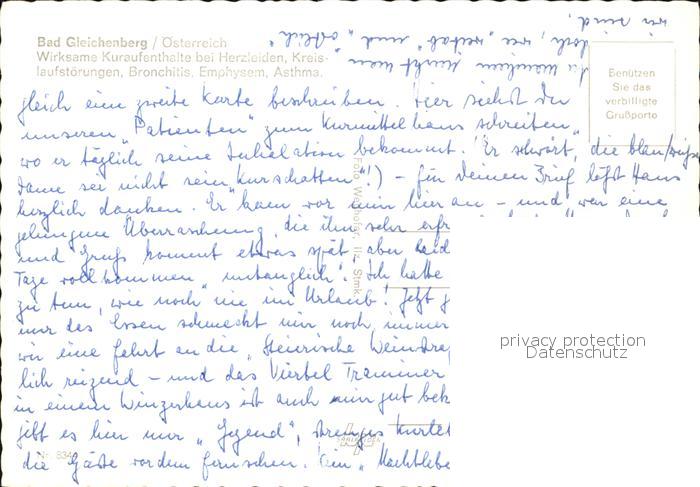 Bad Gleichenberg / Österreich
Wirksame Kuraufenthalte bei Herzleiden, Kreis-
laufstörungen, Bronchitis, Emphysem, Asthma.
Benützen
Sie das
verbilligte
Grußporto
wir sind,
doch, wie "weitab" und "östlich"
du merkst
gleich eine zweite Karte beschreiben. Hier siehst Du
unseren "Patienten" zum Kurmittelhaus schreiten,
wo er täglich seine Inhalation bekommt. (Er schwört, die blau/weiße
Dame sei nicht sein "Kurschatten"!) – für Deinen Brief läßt Hans
herzlich danken. Er kam vor ihm hier an – und war eine
gelungene Überraschung, die ihn sehr erfr
und Gruß kommt etwas spät, aber
Tage vollkommen "untauglich". Ich hatte
zu tun, wie noch nie im Urlaub! Jetzt g
nur das Essen schmeckt mir noch immer
wir eine Fahrt an die "Steirische Weinstra
lich reizend – und das Viertel Traminer
in einem Winzerhaus ist auch mir gut bek
gibt es hier nur "Gegend", strenges
die Gäste vor dem Fernsehen. Ein "Nachtlebe
Foto Weinhofer, Ilz, Stmk.
Nr. 834
privacy protection
Datenschutz